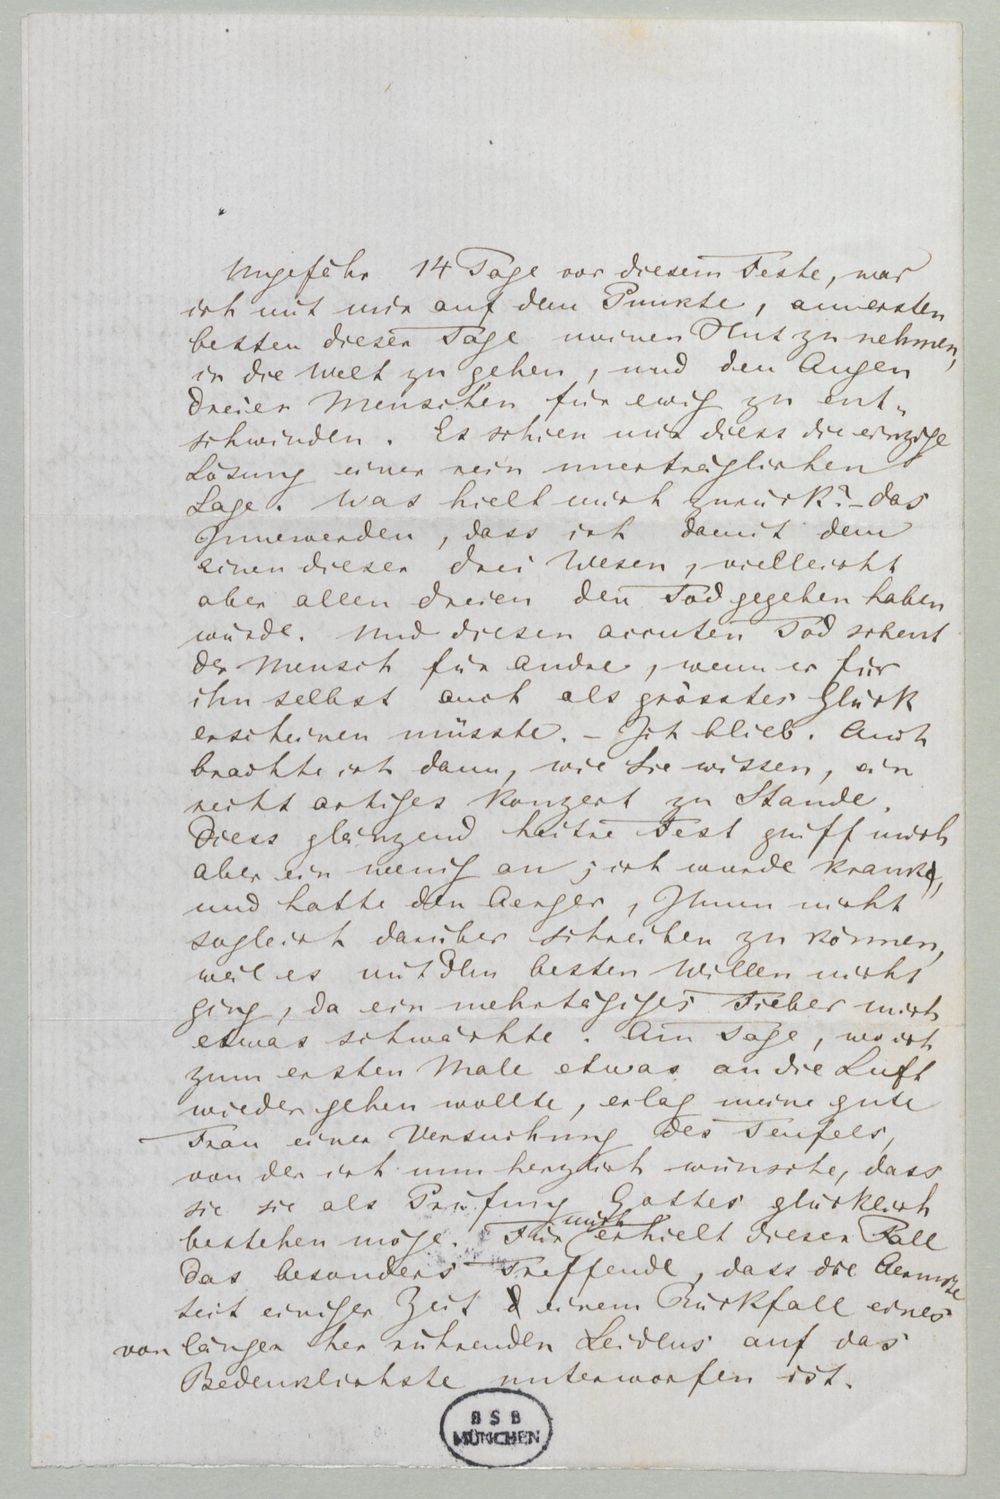 Ungefähr 14 Tage vor diesem Feste, war
ich mit mir auf dem Punkte, am ersten
besten dieser Tage meinen Hut zu nehmen,
in die Welt zu gehen, und den Augen
dreier Menschen für ewig zu ent-
schwinden. Es schien mir diess die einzige
Lösung einer rein unerträglichen
Lage. Was hielt mich zurück? – das
Innewerden, dass ich damit dem
einen dieser drei Wesen, vielleicht
aber allen dreien den Tod gegeben haben
würde. Und diesen acuten Tod scheut
der Mensch für andre, wenn er für
ihn selbst auch als grösstes Glück
erscheinen müsste. – Ich blieb. Auch
brachte ich dann, wie Sie wissen, ein
recht artiges Konzert zu Stande.
Diess glänzend heitre Fest griff mich
aber ein wenig an; ich wurde krank,
und hatte den Aerger, Ihnen nicht
sogleich darüber schreiben zu können,
weil es mit dem besten Willen nicht
ging, da ein mehrtägiges Fieber mich
etwas schwächte. Am Tage, wo ich
zum ersten Male etwas an die Luft
wieder gehen wollte, erlag meine gute
Frau einer Versuchung des Teufels,
von der ich nun herzlich wünsche, dass
sie sie als Prüfung Gottes glücklich
bestehen möge. Für mich erhielt dieser Fall
das besonders Treffende, dass die Aermste
seit einiger Zeit einem Rückfall eines
von länger her rührenden Leidens auf das
Bedenklichste unterworfen ist.
BSB
MÜNCHEN